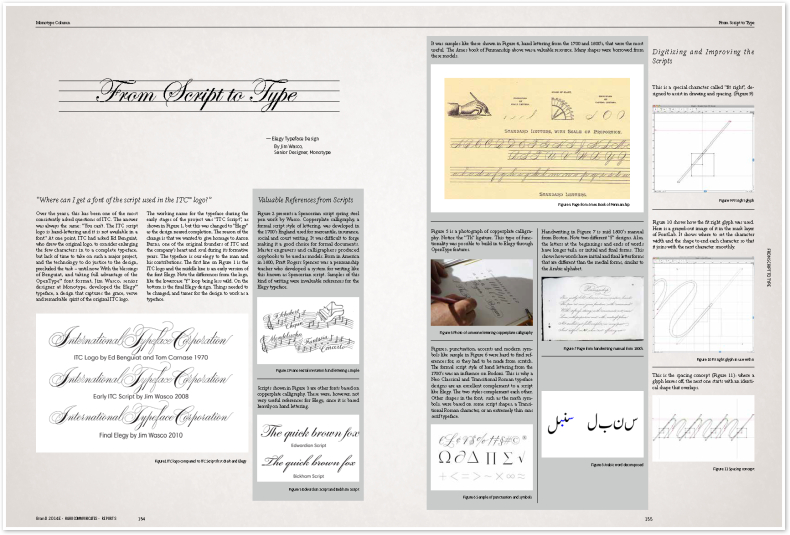 Monotype Column
From Script to Type
From Script to Type
— Elegy Typeface Design
By Jim Wasco,
Senior Designer, Monotype
"Where can I get a font of the script used in the ITC® logo?"
Over the years, this has been one of the most
consistently asked questions of ITC. The answer
was always the same: "You can't. The ITC script
logo is hand-lettering and it is not available in a
font." At one point, ITC had asked Ed Benguiat,
who drew the original logo, to consider enlarging
the few characters in to a complete typeface,
but lack of time to take on such a major project,
and the technology to do justice to the design,
precluded the task – until now. With the blessings
of Benguiat, and taking full advantage of the
OpenType® font format, Jim Wasco, senior
designer at Monotype, developed the Elegy™
typeface, a design that captures the grace, verve
and remarkable spirit of the original ITC logo.
The working name for the typeface during the
early stages of the project was "ITC Script", as
shown in Figure 1, but this was changed to "Elegy"
as the design neared completion. The reason of the
change is that we wanted to give homage to Aaron
Burns, one of the original founders of ITC and
the company's heart and soul during its formative
years. The typeface is our elegy to the man and
his contributions. The first line on Figure 1 is the
ITC logo and the middle line is an early version of
the first Elegy. Note the differences from the logo,
like the lowercase "f" loop being less wild. On the
bottom is the final Elegy design. Things needed to
be changed, and tamer for the design to work as a
typeface.
International Typeface Corporation
ITC Logo by Ed Benguiat and Tom Carnase 1970
International Typeface Corporation
Early ITC Script by Jim Wasco 2008
International Typeface Corporation
Final Elegy by Jim Wasco 2010
Figure 1 ITC logo compared to ITC Script first draft and Elegy
Valuable References from Scripts
Figure 2 presents a Spencerian script spring steel
pen work by Wasco. Copperplate calligraphy, a
formal script style of lettering, was developed in
the 1700's England, used for mercantile, insurance,
social and court writing. It was difficult to forge
making it a good choice for formal documents.
Master engravers and calligraphers produced
copybooks to be used as models. Born in America
in 1800, Platt Rogers Spencer was a penmanship
teacher who developed a system for writing like
this known as Spencerian script. Samples of this
kind of writing were invaluable references for the
Elegy typeface.
Scripts shown in Figure 3 are other fonts based on
copperplate calligraphy. These were, however, not
very useful references for Elegy, since it is based
heavily on hand lettering.
The quick brown fox
Edwardian Script
The quick brown fox
Bickham Script
Figure 3 Edwardian Script and Bickham Script
154
It was samples like those shown in Figure 4, hand lettering from the 1700 and 1800's, that were the most
useful. The Ames book of Penmanship above were a valuable resource. Many shapes were borrowed from
these models.
Standard Letters, with Scale of Proportion.
Standard Letters.
Figure 4 Page from Ames Book of Penmanship
Figure 5 is a photograph of copperplate calligra-
phy. Notice the "Th" ligature. This type of func-
tionality was possible to build in to Elegy through
OpenType features.
Handwriting in Figure 7 is mid 1800's manual
from Boston. Note two different "S" designs. Also,
the letters at the beginnings and ends of words
have longer tails, or initial and final forms. This
shows how words have initial and final letterforms
that are different than the medial forms, similar to
the Arabic alphabet.
Figure 7 Page from handwriting manual from 1800s
Figures, punctuation, accents and modern sym-
bols like sample in Figure 6 were hard to find ref-
erences for, so they had to be made from scratch.
The formal script style of hand lettering from the
1700's was an influence on Bodoni. This is why a
Neo Classical and Transitional Roman typeface
designs are an excellent complement to a script
like Elegy. The two styles complement each other.
Other shapes in the font, such as the math sym-
bols, were based on some script shapes, a Transi-
tional Roman character, or an extremely thin sans
serif typeface.
Ω ∂ Δ Π Σ √
+ < = > ~ × ∞ ÷
Figure 6 Sample of punctuation and symbols
سنبل س ن ب ل
Figure 8 Arabic word decomposed
Digitizing and Improving the
Scripts
This is a special character called "fit right", de-
signed to assist in drawing and spacing. (Figure 9)
Figure 9 Fitright Glyph
Figure 10 shows how the fit right glyph was used.
Here is a grayed-out image of it in the mask layer
of FontLab. It shows where to set the character
width and the shape to end each character so that
it joins with the next character smoothly.
Figure 10 Fit right glyph in use with n
This is the spacing concept (Figure 11); where a
glyph leaves off, the next one starts with an identi-
cal shape that overlaps.
Figure 11 Spacing concept
FROM SCRIPT TO TYPE
155